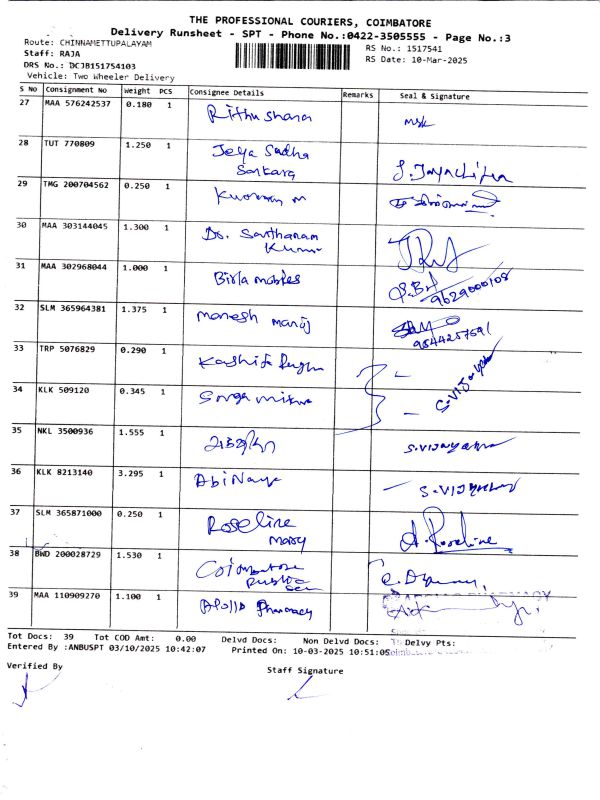 THE PROFESSIONAL COURIERS, COIMBATORE
Delivery Runsheet - SPT - Phone No.:0422-3505555 - Page No.:3
Route: CHINNAMETTUPALAYAM
RS No.: 1517541
Staff: RAJA
RS Date: 10-Mar-2025
DRS No.: DCJB151754103
Vehicle: Two Wheeler Delivery
S No Consignment No Weight PCS Consignee Details Remarks Seal & Signature
27 MAA 576242537 0.180 1 Rithu sharan
28 TUT 770809 1.250 1 Jeya Sudha
29 TMG 200704562 0.250 1
30 MAA 303144045 1.300 1 Ds. Santhanam
Kumar
31 MAA 302968044 1.000 1 Birla
9629000108
32 SLM 365964381 1.375 1 manoj
33 TRP 5076829 0.290 1
S.VIJAYA
34 KLK 509120 0.345 1
35 NKL 3500936 1.555 1
36 KLK 8213140 3.295 1 Abi Naya
37 SLM 365871000 0.250 1 Roseline
mary A. Roseline
38 BWD 200028729 1.530 1 Coimbatore
Public
39 MAA 110909270 1.100 1 Apollo Pharmacy
Tot Docs: 39 Tot COD Amt: 0.00 Delvd Docs: Non Delvd Docs: Delvy Pts:
Entered By :ANBUSPT 03/10/2025 10:42:07 Printed On: 10-03-2025 10:51:05
Verified By
Staff Signature